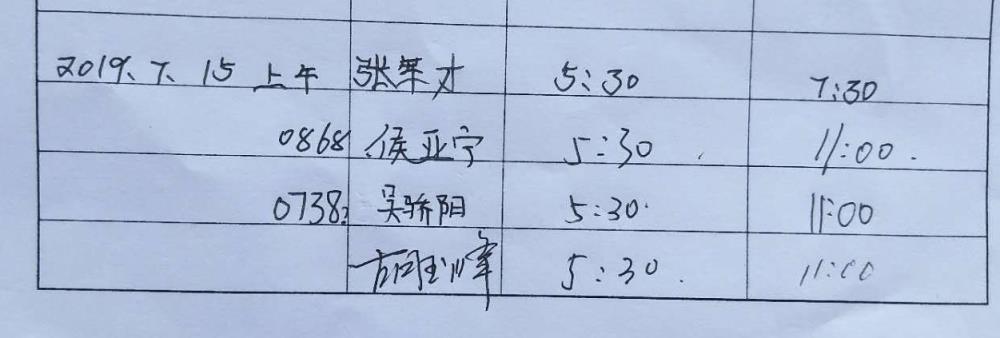 2019.7.15 上午 张军才 5:30 7:30
0868 侯亚宁 5:30 11:00.
0738 吴骄阳 5:30 11:00
5:30. 11:00